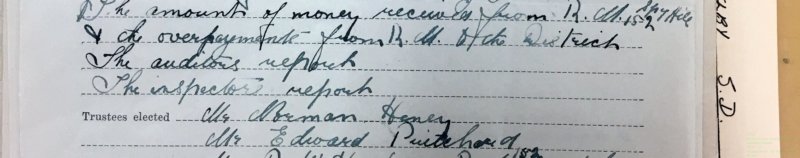 The amount of money received from R. M. 152 Spy Hill
& the overpayments from R. M. to the District
The auditors report
The inspectors report
Trustees elected Mr Norman Haney
Mr Edward Pritchard
152
S. D.